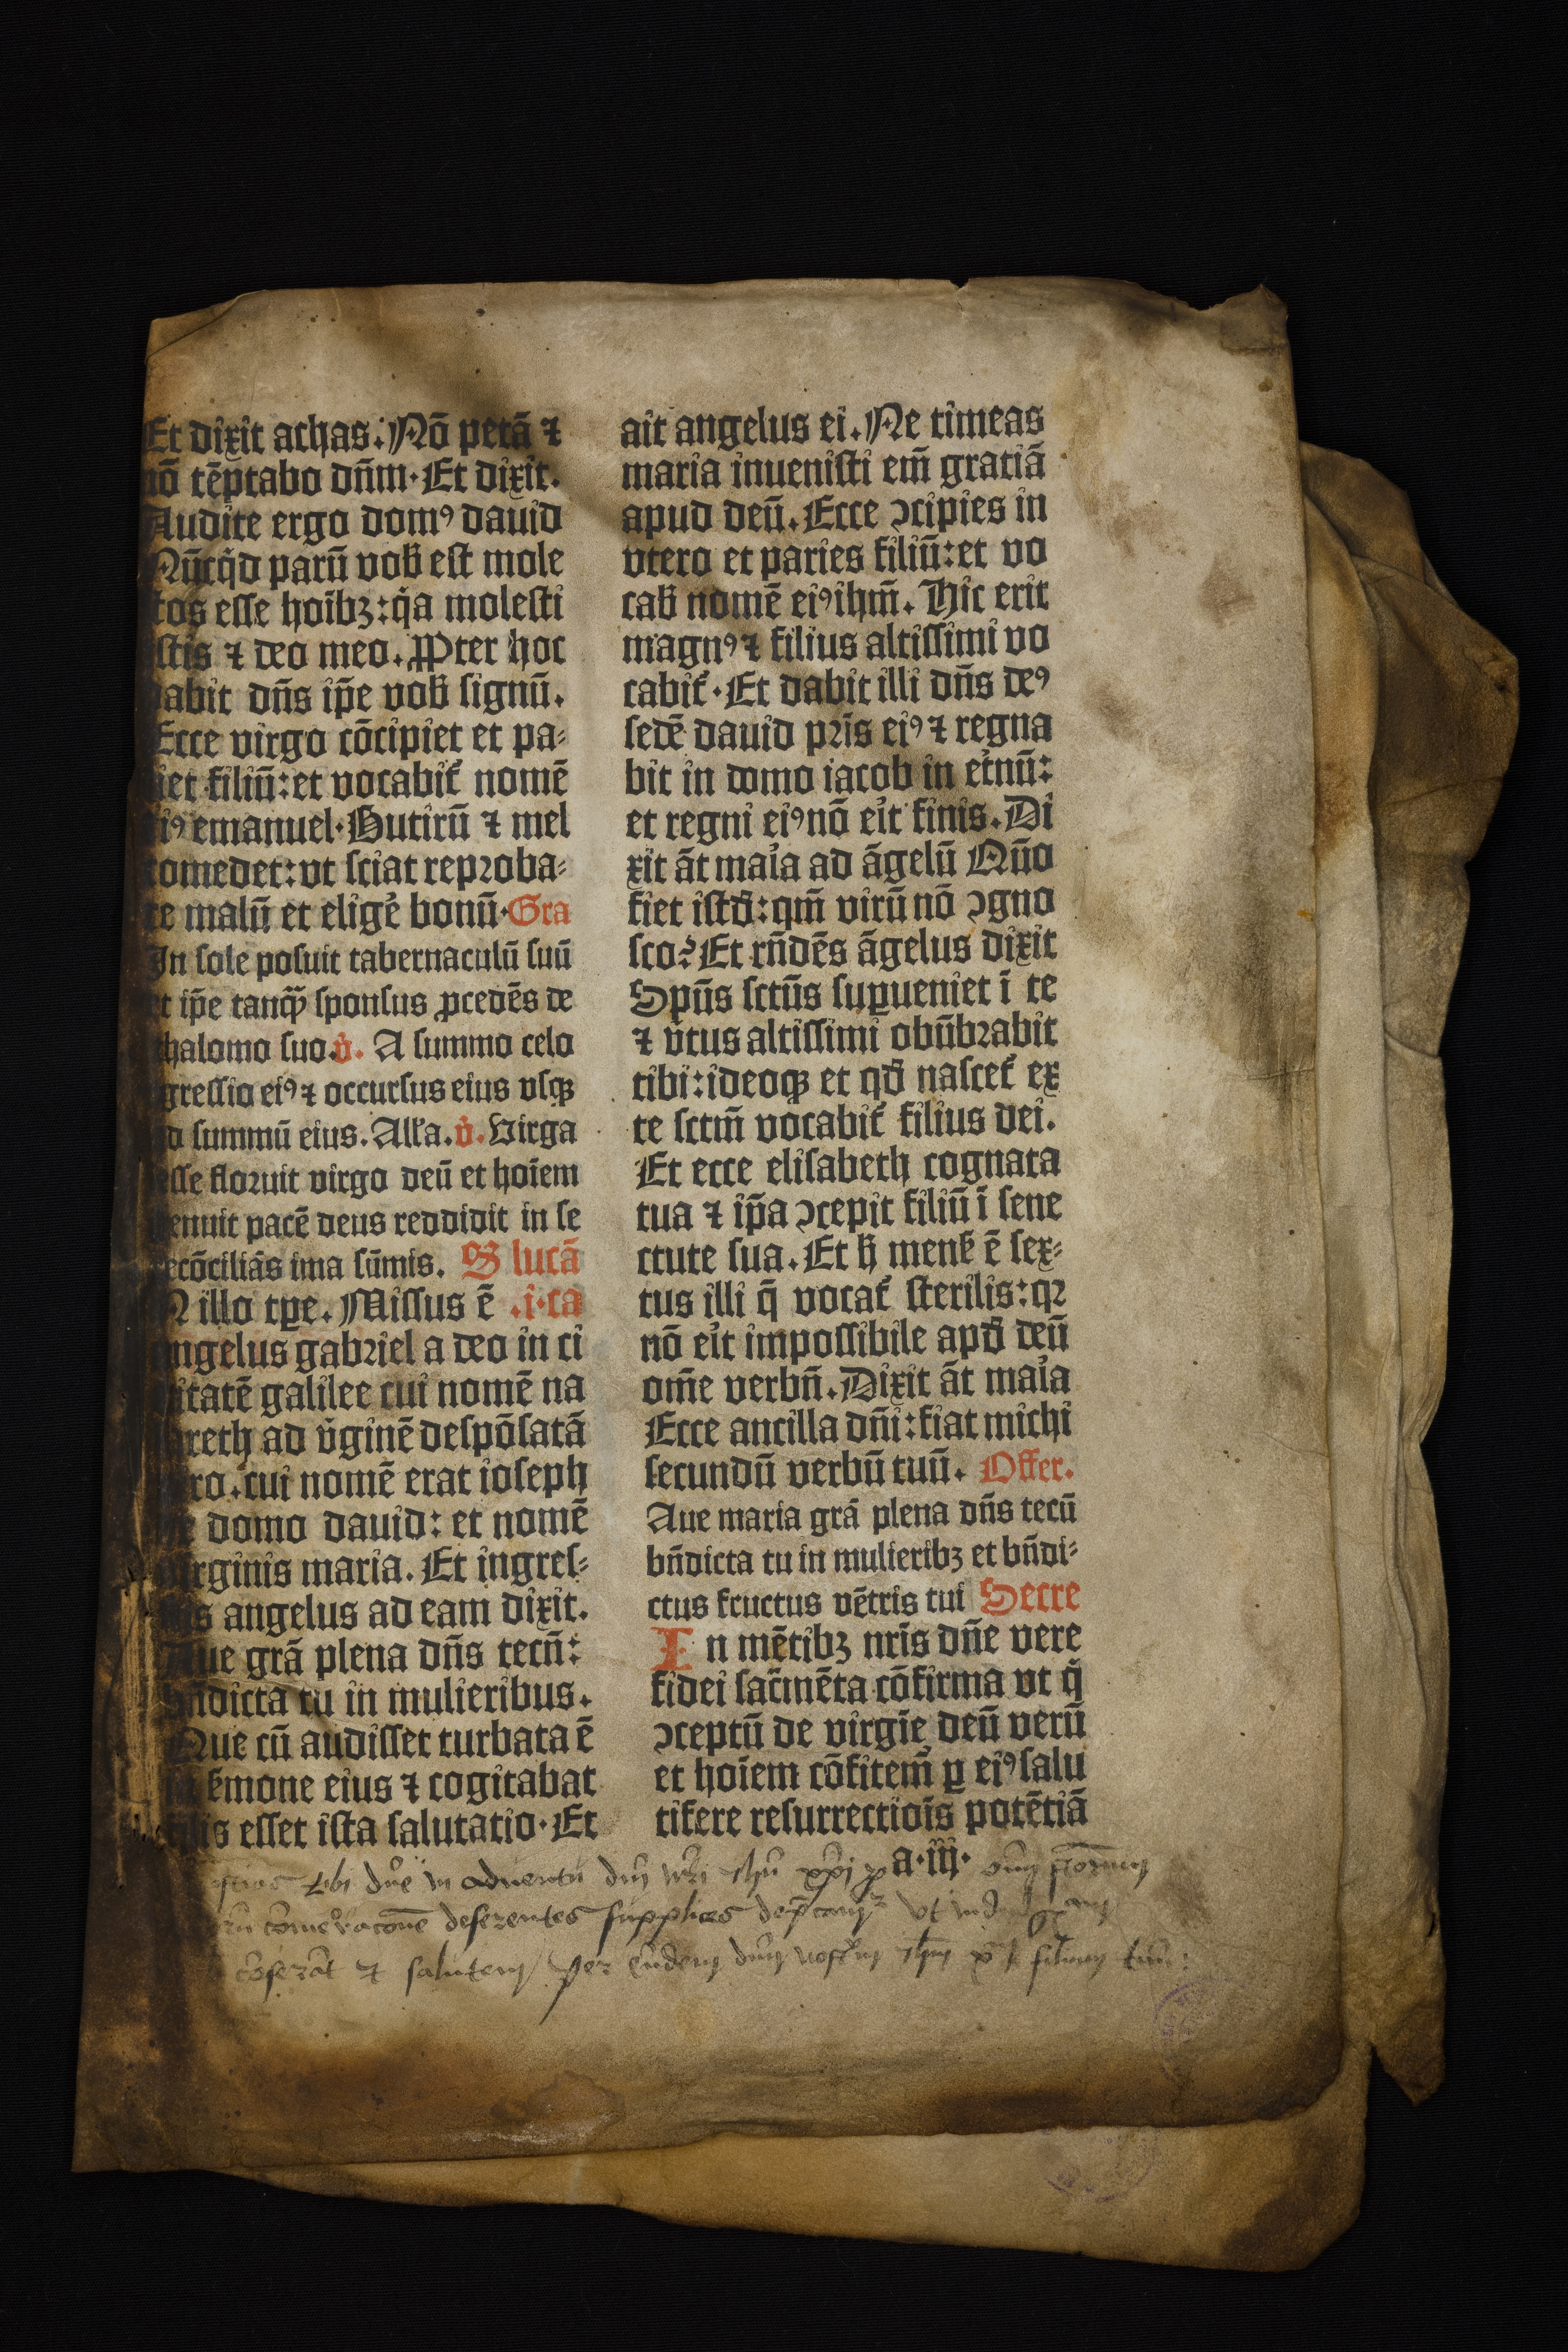 Et dixit achas. Nō petā ⁊
nō tēptabo dn̄m. Et dixit.
Audite ergo domꝰ dauid
Nūcqͥd parū vob̄ est mole
tos esse hoībꝫ: qͥa molesti
stis ⁊ deo meo. Ꝓpter hoc
dabit dn̄s ip̄e vob̄ signū.
Ecce virgo cōcipiet et pa⸗
iet filiū: et vocabit᷑ nomē
eiꝰ emanuel. Butirū ⁊ mel
comedet: vt sciat reproba⸗
re malū et elige᷑ bonū. Gra
In sole posuit tabernaculū suū
et ip̄e tanqͣꝫ sponsus ꝓcedēs de
thalomo suo. v̊. A summo celo
egressio eiꝰ ⁊ occursus eius vsqꝫ
ad summū eius. All'a. v̊. Virga
esse floruit virgo deū et hoīem
enuit pacē deus reddidit in se
ecōciliās ima sūmis. S lucā
N illo tꝑe. Missus ē .i. ca
angelus gabriel a deo in ci
uitatē galilee cui nomē na
areth ad v̓ginē despōsatā
iro. cui nomē erat ioseph
de domo dauid: et nomē
virginis maria. Et ingres⸗
sus angelus ad eam dixit.
Aue grā plena dn̄s tecū:
bn̄dicta tu in mulieribus.
Que cū audisset turbata ē
ẜmone eius ⁊ cogitabat
qualis esset ista salutatio. Et
ait angelus ei. Ne timeas
maria inuenisti em̄ gratiā
apud deū. Ecce ↄcipies in
vtero et paries filiū: et vo
cab̄ nomē eiꝰ ihm̄. Hic erit
magnꝰ ⁊ filius altissimi vo
cabit᷑. Et dabit illi dn̄s deꝰ
sedē dauid pr̄is eiꝰ ⁊ regna
bit in domo iacob in et̓nū:
et regni eiꝰ nō eit̓ finis. Di
xit āt maͥa ad āgelū Quō
fiet istd̄: qm̄ virū nō ↄgno
sco? Et rn̄dēs āgelus dixit
Spūs sctūs suꝑueniet ī te
⁊ v̓tus altissimi obūbrabit
tibi: ideoqꝫ et qd̄ nascet᷑ ex
te sctm̄ vocabit᷑ filius dei.
Et ecce elisabeth cognata
tua ⁊ ip̄a ↄcepit filiū ī sene
ctute sua. Et h̄ menẜ ē sex⸗
tus illi q̄ vocat᷑ sterilis: qꝛ
nō eit̓ impossibile apd̄ deū
om̄e verbū. Dixit āt maͥa
Ecce ancilla dn̄i: fiat michi
secundū verbū tuū. Offer.
Aue maria grā plena dn̄s tecū
bn̄dicta tu in mulieribꝫ et bn̄di⸗
ctus fructus vētris tui Secre
In mētibꝫ nr̄is dn̄e vere
fidei sac̄mēta cōfirma vt q̄
ↄceptū de virgīe deū verū
et hoīem cōfitem̄ ꝑ eiꝰ salu
tifere resurrectiōis potētiā
a.iij.
tibi dn̄e in aduentu dn̄i nr̄i ihū xp̄i
deferentes supplices vt
cōferāt ⁊ salutem. Per eundem dn̄m nostrum filium tuū: